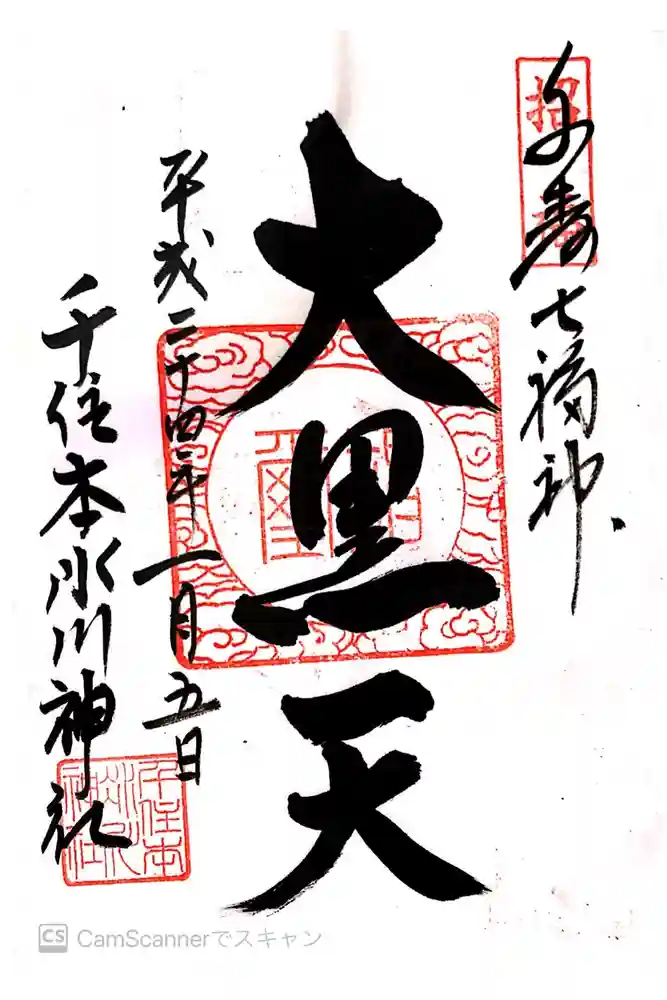 千寿七福神
招福
大黒天
平成二十四年一月五日
千住本氷川神社
千住本氷川神社
CS CamScannerでスキャン